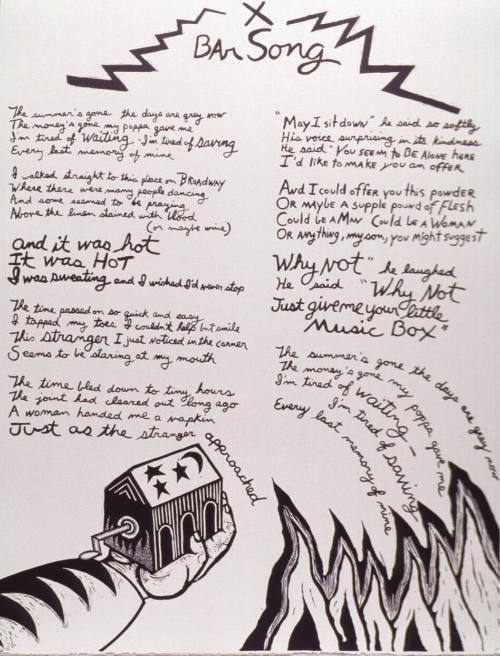 X
BAR Song
The summer's gone the days are grey now
The money's gone my poppa gave me
I'm tired of WAITING - I'm tired of SAVING
Every last memory of mine
I walked straight to this place on BROADWAY
Where there were many people dancing
And some seemed to be praying
Above the linen stained with blood
(or maybe wine)
and it was hot
It was HOT
I was sweating and I wished I'd never stop
The time passed on so quick and easy
I tapped my toes I couldn't help but smile
This stranger I just noticed in the corner
Seems to be staring at my mouth
The time bled down to tiny hours
The joint had cleared out long ago
A woman handed me a napkin
Just as the stranger approached
"May I sit down" he said so softly
His voice surprising in its kindness
He said "You seem to BE Alone here
I'd like to make you an offer
And I could offer you this powder
OR maybe a supple pound of FLESH
Could be a MAN Could be a WOMAN
OR Anything, my son, you might suggest
Why Not" he laughed
He said "Why Not
Just give me your little
Music Box"
The summer's gone the days are grey now
The money's gone my poppa gave me
I'm tired of waiting -
I'm tired of saving
Every last memory of mine